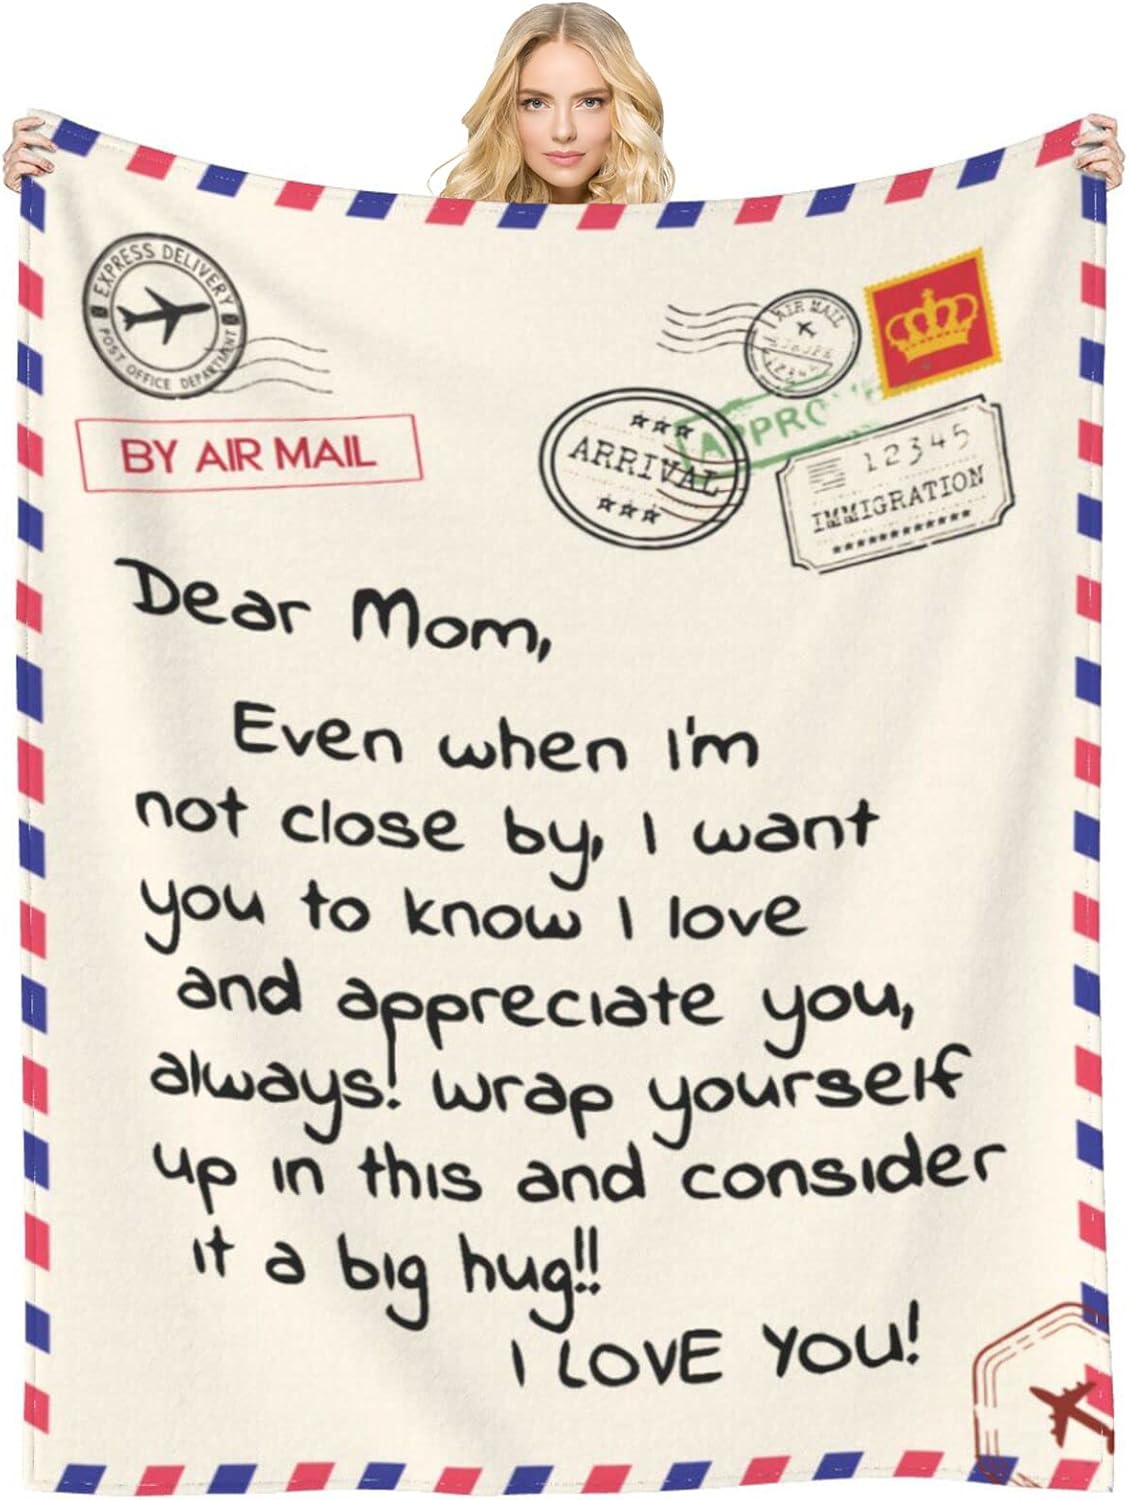 EXPRESS DELIVERY
POST OFFICE DEPARTMENT
BY AIR MAIL
AIR MAIL
ARRIVAL
APPRO
12345
IMMIGRATION
Dear Mom,
Even when I'm
not close by, I want
you to know I love
and appreciate you,
always! wrap yourself
up in this and consider
it a big hug!!
I LOVE YOU!